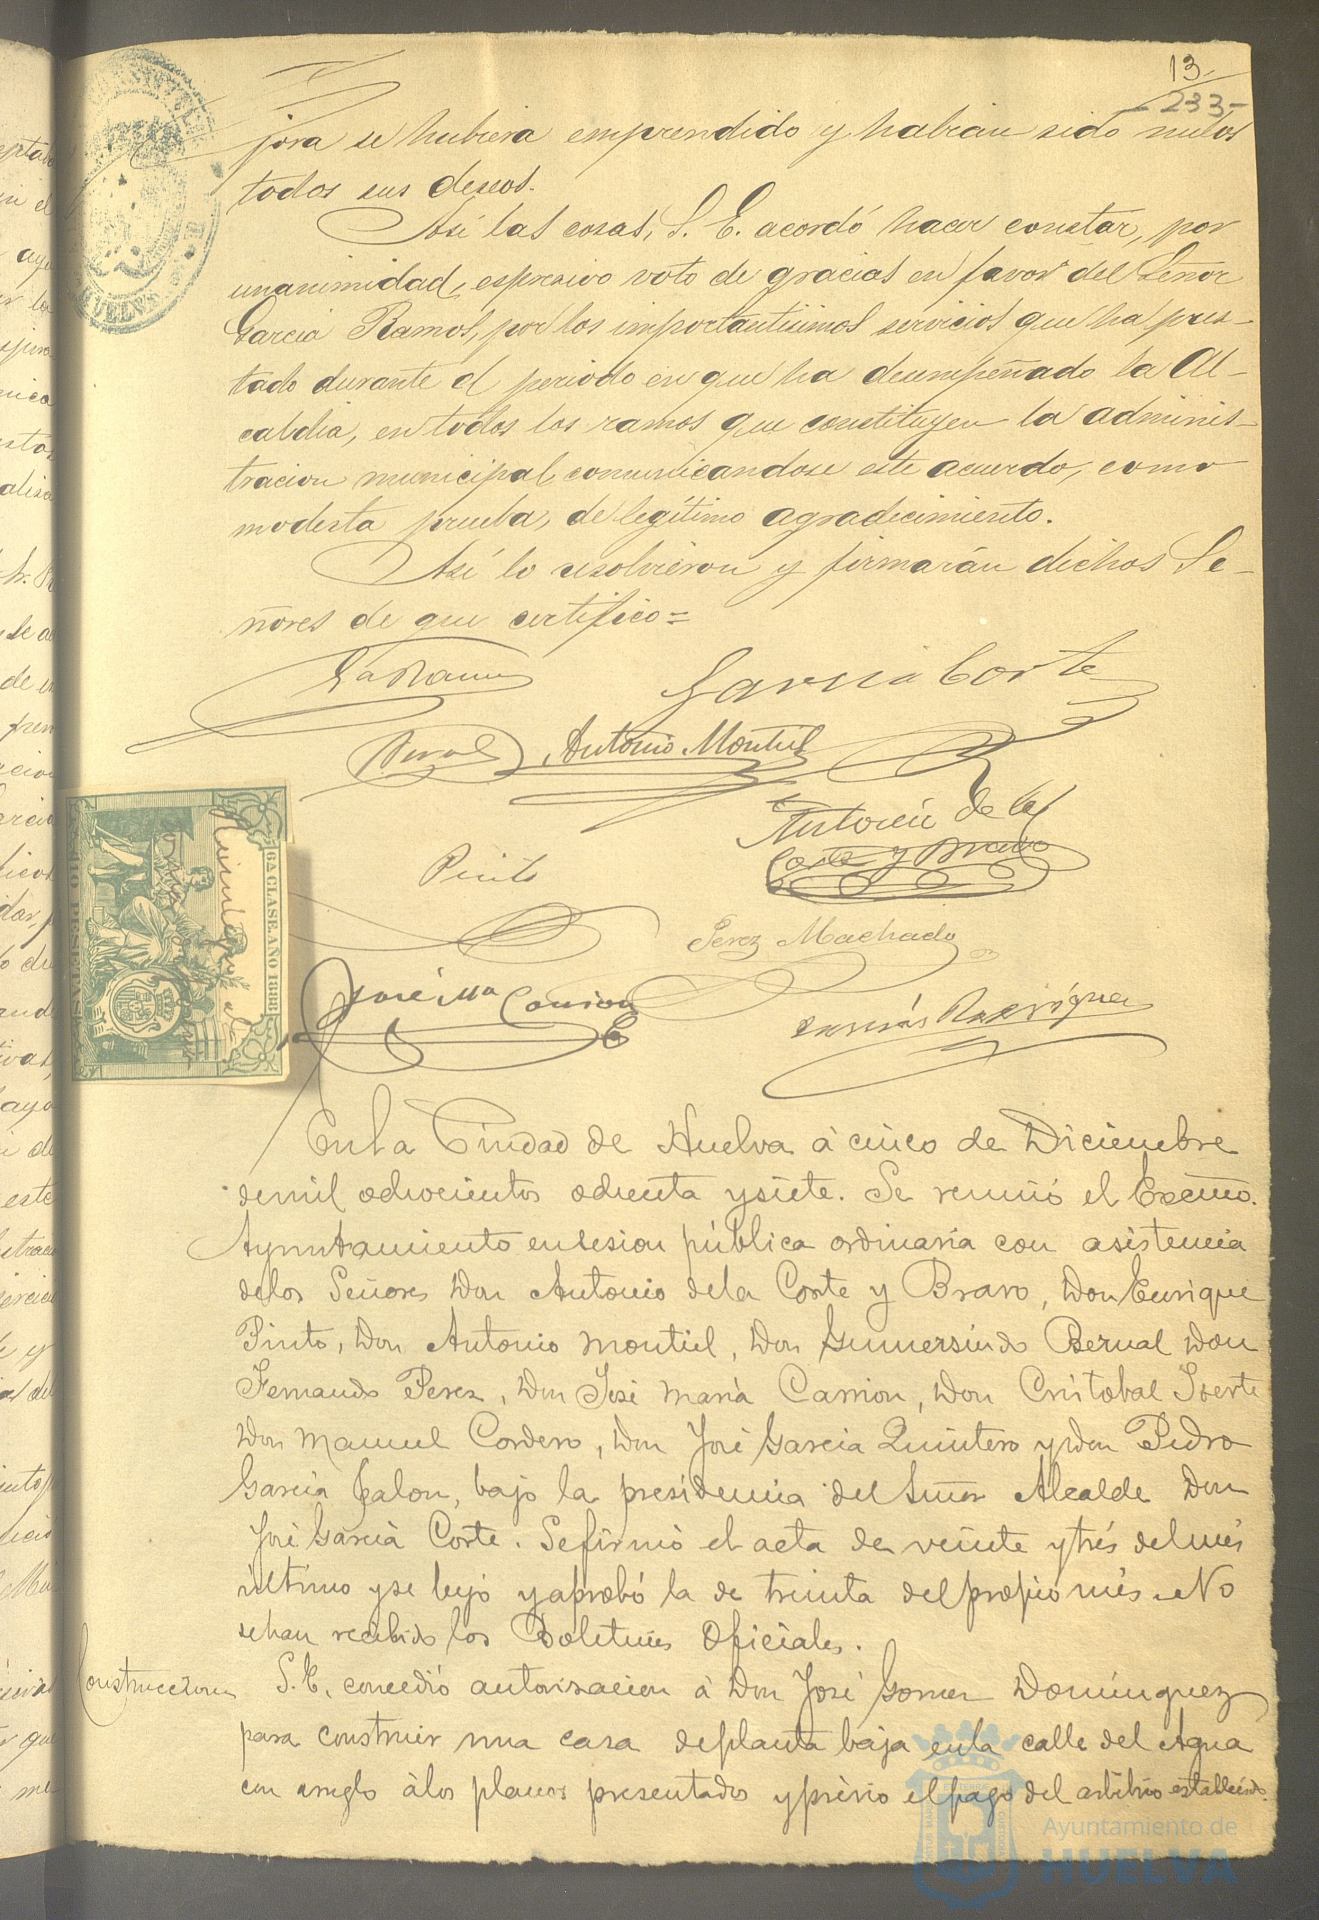 13
-233-
jora se hubiera emprendido y habrian sido nulos
todos sus deseos.
Así las cosas, S. E. acordó hacer constar, por
unanimidad, espresivo voto de gracias en favor del Señor
Garcia Ramos, por los importantisimos servicios que ha pres-
tado durante el periodo en que ha desempeñado la Al-
caldia, en todos los ramos que constituyen la adminis-
tracion municipal, comunicandose este acuerdo, como
modesta prueba, de legítimo agradecimiento.
Así lo resolvieron y firmarán dichos Se-
ñores de que certifico=
Ga Ramos
Garcia Corte
Bernal
Antonio Montiel
Antonio de la
Corte y Bravo
Pinto
Perez Machado
José Ma Carrion
Rodríguez
6A CLASE. AÑO 1888
PESETAS
HUELVA
En la Ciudad de Huelva á cinco de Diciembre
de mil ochocientos ochenta y siete. Se reunió el Excmo.
Ayuntamiento en sesion pública ordinaria con asistencia
de los Señores Don Antonio de la Corte y Bravo, Don Enrique
Pinto, Don Antonio Montiel, Don Gumersindo Bernal Don
Fernando Perez, Don José Maria Carrion, Don Cristobal
Don Manuel Cordero, Don José Garcia Quintero y Don Pedro
Garcia Jalon, bajo la presidencia del Señor Alcalde Don
José Garcia Corte. Se firmó el acta de veinte y trés del més
último y se leyó y aprobó la de treinta del propio més. No
se han recibido los Boletines Oficiales.
Construccion
S. E. concedió autorisacion á Don José Gomez Domínguez
para construir una casa de planta baja en la calle del Agua
con arreglo á los planos presentados y prévio el pago del arbitrio establecido.
Ayuntamiento de
HUELVA